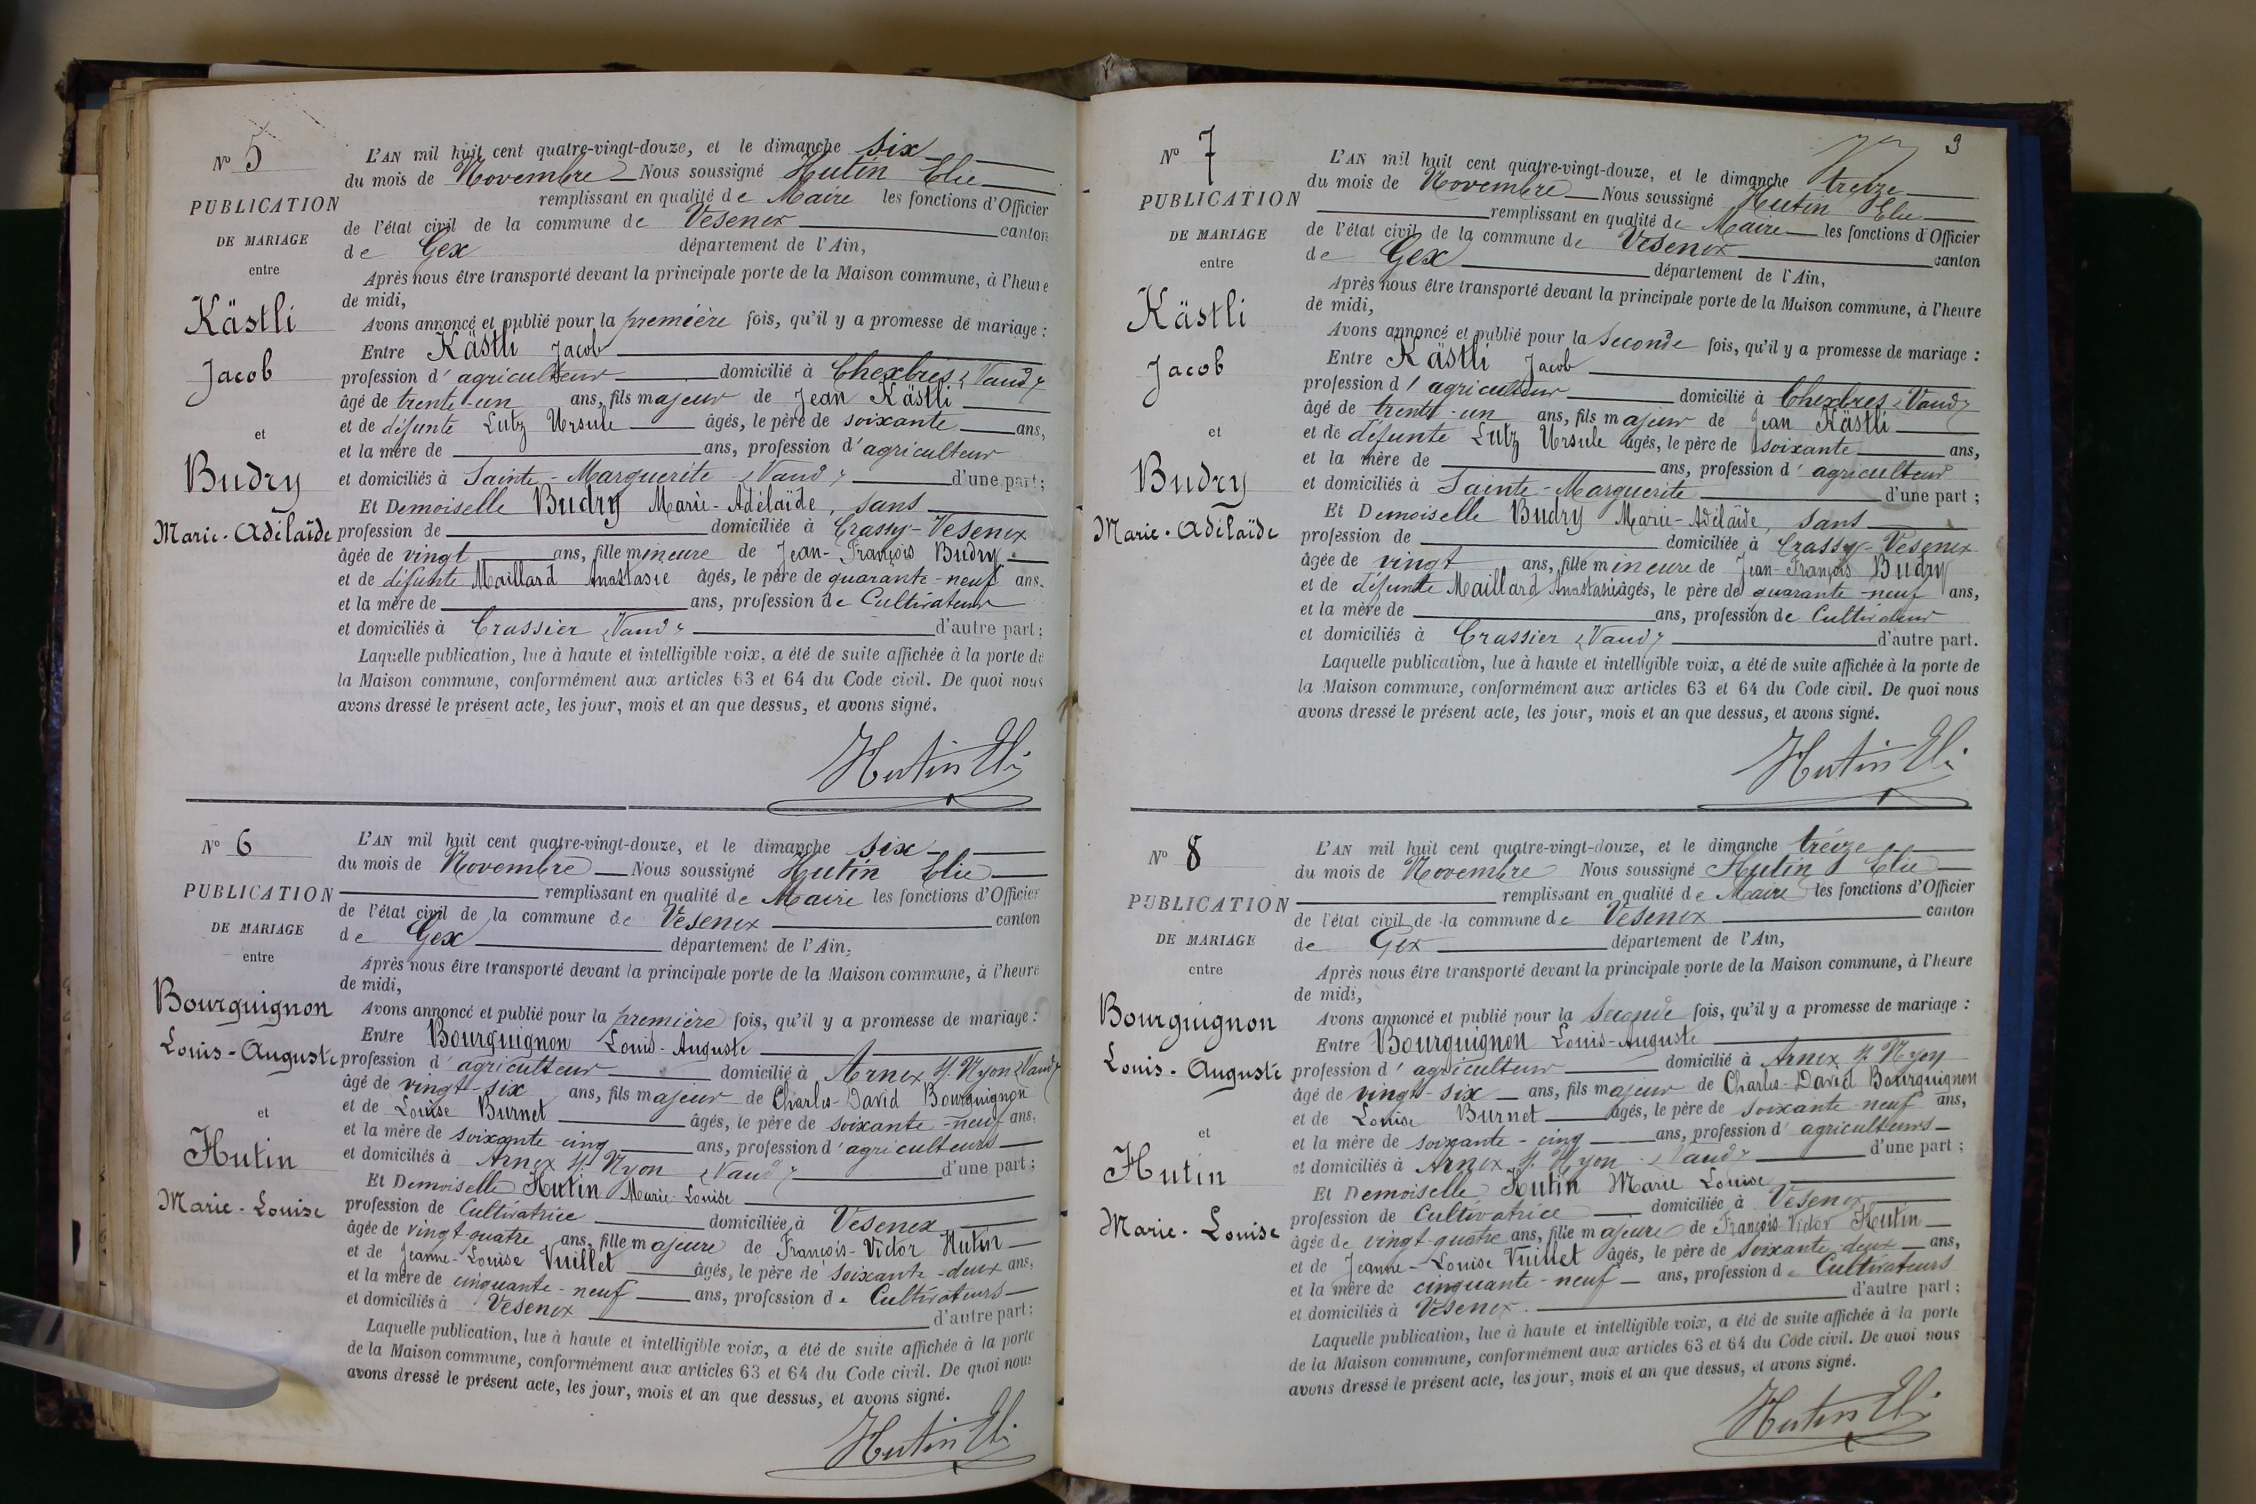 N° 5
PUBLICATION
DE MARIAGE
entre
Kästli
Jacob
et
Budry
Marie-Adélaïde
L'AN mil huit cent quatre-vingt-douze, et le dimanche six
du mois de Novembre Nous soussigné Hutin Elie
remplissant en qualité de Maire les fonctions d'Officier
de l'état civil de la commune de Vesenex canton
de Gex département de l'Ain,
Après nous être transporté devant la principale porte de la Maison commune, à l'heure
de midi,
Avons annoncé et publié pour la première fois, qu'il y a promesse de mariage :
Entre Kästli Jacob
profession d'agriculteur domicilié à Chexbres (Vaud)
âgé de trente-un ans, fils majeur de Jean Kästli
et de défunte Lutz Ursule âgés, le père de soixante ans,
et la mère de ans, profession d'agriculteur
et domiciliés à Sainte-Marguerite (Vaud) d'une part ;
Et Demoiselle Budry Marie-Adélaïde, sans
profession de domiciliée à Crassy-Vesenex
âgée de vingt ans, fille mineure de Jean-François Budry
et de défunte Maillard Anastasie âgés, le père de quarante-neuf ans.
et la mère de ans, profession de Cultivateur
et domiciliés à Crassier (Vaud) d'autre part ;
Laquelle publication, lue à haute et intelligible voix, a été de suite affichée à la porte de
la Maison commune, conformément aux articles 63 et 64 du Code civil. De quoi nous
avons dressé le présent acte, les jour, mois et an que dessus, et avons signé.
Hutin Eli
N° 6
PUBLICATION
DE MARIAGE
entre
Bourguignon
Louis-Auguste
et
Hutin
Marie-Louise
L'AN mil huit cent quatre-vingt-douze, et le dimanche six
du mois de Novembre Nous soussigné Hutin Elie
remplissant en qualité de Maire les fonctions d'Officier
de l'état civil de la commune de Vesenex canton
de Gex département de l'Ain,
Après nous être transporté devant la principale porte de la Maison commune, à l'heure
de midi,
Avons annoncé et publié pour la première fois, qu'il y a promesse de mariage :
Entre Bourguignon Louis-Auguste
profession d'agriculteur domicilié à Arnex s/. Nyon (Vaud)
âgé de vingt-six ans, fils majeur de Charles-David Bourguignon
et de Louise Burnet âgés, le père de soixante-neuf ans,
et la mère de soixante-cinq ans, profession d'agriculteurs
et domiciliés à Arnex s/. Nyon (Vaud) d'une part ;
Et Demoiselle Hutin Marie-Louise
profession de Cultivatrice domiciliée à Vesenex
âgée de vingt-quatre ans, fille majeure de François-Victor Hutin
et de Jeanne-Louise Vuillet âgés, le père de soixante-deux ans,
et la mère de cinquante-neuf ans, profession de Cultivateurs
et domiciliés à Vesenex d'autre part ;
Laquelle publication, lue à haute et intelligible voix, a été de suite affichée à la porte
de la Maison commune, conformément aux articles 63 et 64 du Code civil. De quoi nous
avons dressé le présent acte, les jour, mois et an que dessus, et avons signé.
Hutin Eli
3
N° 7
PUBLICATION
DE MARIAGE
entre
Kästli
Jacob
et
Budry
Marie-Adélaïde
L'AN mil huit cent quatre-vingt-douze, et le dimanche treize
du mois de Novembre Nous soussigné Hutin Elie
remplissant en qualité de Maire les fonctions d'Officier
de l'état civil de la commune de Vesenex canton
de Gex département de l'Ain,
Après nous être transporté devant la principale porte de la Maison commune, à l'heure
de midi,
Avons annoncé et publié pour la seconde fois, qu'il y a promesse de mariage :
Entre Kästli Jacob
profession d'agriculteur domicilié à Chexbres (Vaud)
âgé de trente-un ans, fils majeur de Jean Kästli
et de défunte Lutz Ursule âgés, le père de soixante ans,
et la mère de ans, profession d'agriculteur
et domiciliés à Sainte-Marguerite d'une part ;
Et Demoiselle Budry Marie-Adélaïde, sans
profession de domiciliée à Crassy-Vesenex
âgée de vingt ans, fille mineure de Jean-François Budry
et de défunte Maillard Anastasie âgés, le père de quarante-neuf ans,
et la mère de ans, profession de Cultivateur
et domiciliés à Crassier (Vaud) d'autre part.
Laquelle publication, lue à haute et intelligible voix, a été de suite affichée à la porte de
la Maison commune, conformément aux articles 63 et 64 du Code civil. De quoi nous
avons dressé le présent acte, les jour, mois et an que dessus, et avons signé.
Hutin Eli
N° 8
PUBLICATION
DE MARIAGE
entre
Bourguignon
Louis-Auguste
et
Hutin
Marie-Louise
L'AN mil huit cent quatre-vingt-douze, et le dimanche treize
du mois de Novembre Nous soussigné Hutin Elie
remplissant en qualité de Maire les fonctions d'Officier
de l'état civil de la commune de Vesenex canton
de Gex département de l'Ain,
Après nous être transporté devant la principale porte de la Maison commune, à l'heure
de midi,
Avons annoncé et publié pour la seconde fois, qu'il y a promesse de mariage :
Entre Bourguignon Louis-Auguste
profession d'agriculteur domicilié à Arnex s/. Nyon
âgé de vingt-six ans, fils majeur de Charles-David Bourguignon
et de Louise Burnet âgés, le père de soixante-neuf ans,
et la mère de soixante-cinq ans, profession d'agriculteurs
et domiciliés à Arnex s/. Nyon (Vaud) d'une part ;
Et Demoiselle Hutin Marie Louise
profession de Cultivatrice domiciliée à Vesenex
âgée de vingt-quatre ans, fille majeure de François-Victor Hutin
et de Jeanne-Louise Vuillet âgés, le père de soixante-deux ans,
et la mère de cinquante-neuf ans, profession de Cultivateurs
et domiciliés à Vesenex. d'autre part ;
Laquelle publication, lue à haute et intelligible voix, a été de suite affichée à la porte
de la Maison commune, conformément aux articles 63 et 64 du Code civil. De quoi nous
avons dressé le présent acte, les jour, mois et an que dessus, et avons signé.
Hutin Eli